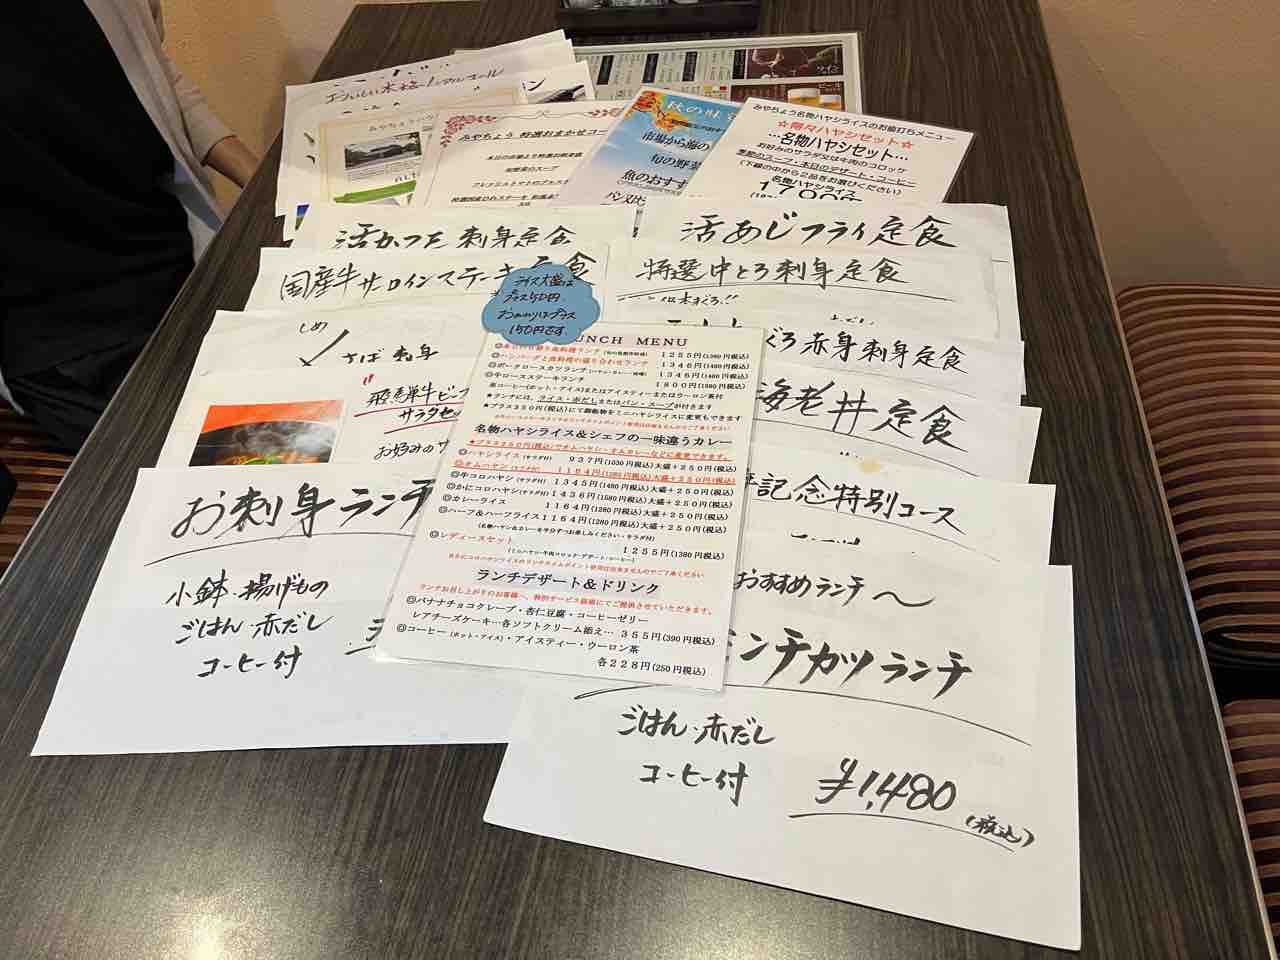 ワイン
ビール
みやちょう 特選おまかせコー
本日のお造り
旬野菜のスープ
秋の味
市場から海の
旬の野菜
魚のおすす
みやちょう名物ハヤシライスのお値打ちメニュー
☆得々ハヤシセット☆
…名物ハヤシセット…
お好みのサラダ又は牛肉のコロッケ
季節のスープ・本日のデザート・コーヒー
(下線の中から2品をお選びください)
名物ハヤシライス
活かつを 刺身定食
活あじフライ定食
国産牛サーロインステーキ定食
特選中とろ刺身定食
ライス大盛は
プラス50円
おかわりはプラス
150円です
しめ
さば 刺身
ぐろ赤身刺身定食
飛騨牛ビーフ
サラダセッ
お好みのサ
海老丼定食
記念特別コース
LUNCH MENU
◎ハンバーグと魚料理の盛り合わせランチ 1346円(1480円税込)
◎ポークロースカツランチ 1346円(1480円税込)
◎牛ロースステーキランチ 1800円(1980円税込)
※コーヒー(ホット・アイス)またはアイスティーまたはウーロン茶付
★ランチには、ライス・赤だしまたはパン・スープが付きます
★プラス350円(税込)にてご飯物をミニハヤシライスに変更もできます
名物ハヤシライス&シェフの一味違うカレー
★プラス250円(税込)でオムハヤシ・オムカレーなどに変更できます。
◎ハヤシライス(サラダ付) 937円(1030円税込)大盛+250円(税込)
◎オムハヤシ(サラダ付) 1164円(1280円税込)大盛+250円(税込)
◎牛コロハヤシ(サラダ付) 1345円(1480円税込)大盛+250円(税込)
◎かにコロハヤシ(サラダ付) 1436円(1580円税込)大盛+250円(税込)
◎カレーライス 1164円(1280円税込)大盛+250円(税込)
◎ハーフ&ハーフライス 1164円(1280円税込)大盛+250円(税込)
(名物ハヤシ&カレーを半分ずつお楽しみください・サラダ付)
◎レディースセット 1255円(1380円税込)
(ミニハヤシ・牛肉コロッケ・デザート・コーヒー)
ランチデザート&ドリンク
ランチお召し上がりのお客様へ、特別サービス価格にてご提供させていただきます。
◎バナナチョコクレープ・杏仁豆腐・コーヒーゼリー
レアチーズケーキ…各ソフトクリーム添え… 355円(390円税込)
◎コーヒー(ホット・アイス)・アイスティー・ウーロン茶
各228円(250円税込)
お刺身ランチ
小鉢・揚げもの
ごはん・赤だし
コーヒー付
おすすめランチ〜
ンチカツランチ
ごはん・赤だし
コーヒー付
¥1,480
(税込)